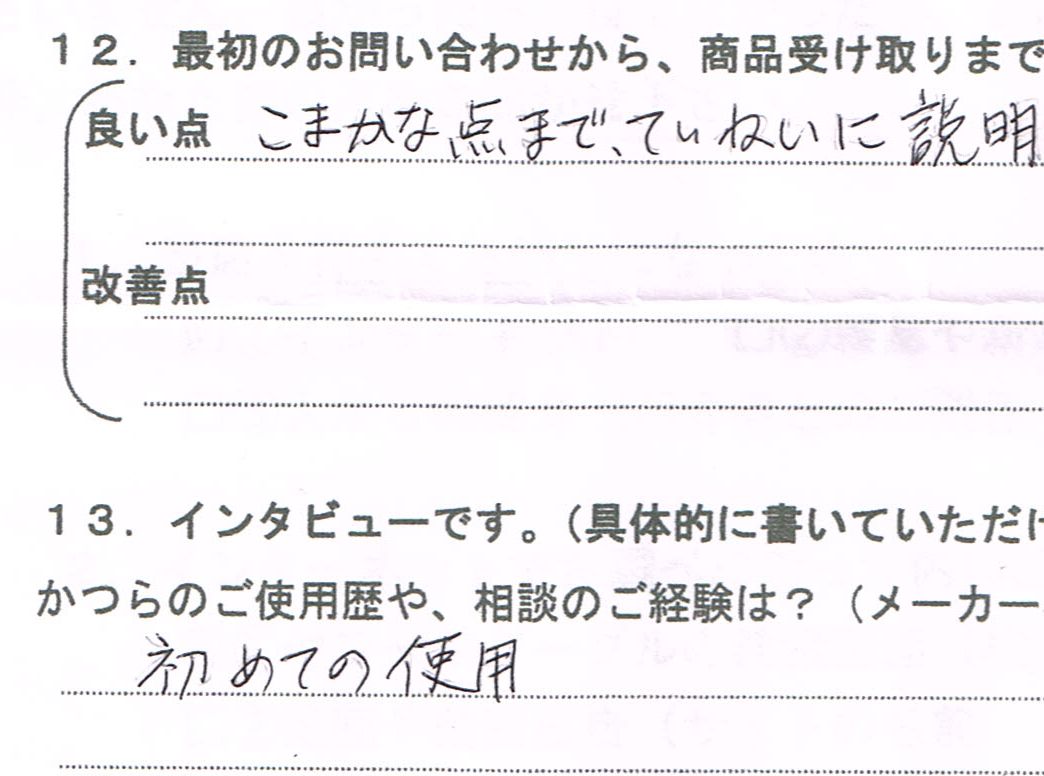 １２．最初のお問い合わせから、商品受け取りまで
良い点 こまかな点まで、ていねいに説明
改善点
１３．インタビューです。（具体的に書いていただけ
かつらのご使用歴や、相談のご経験は？（メーカー
初めての使用